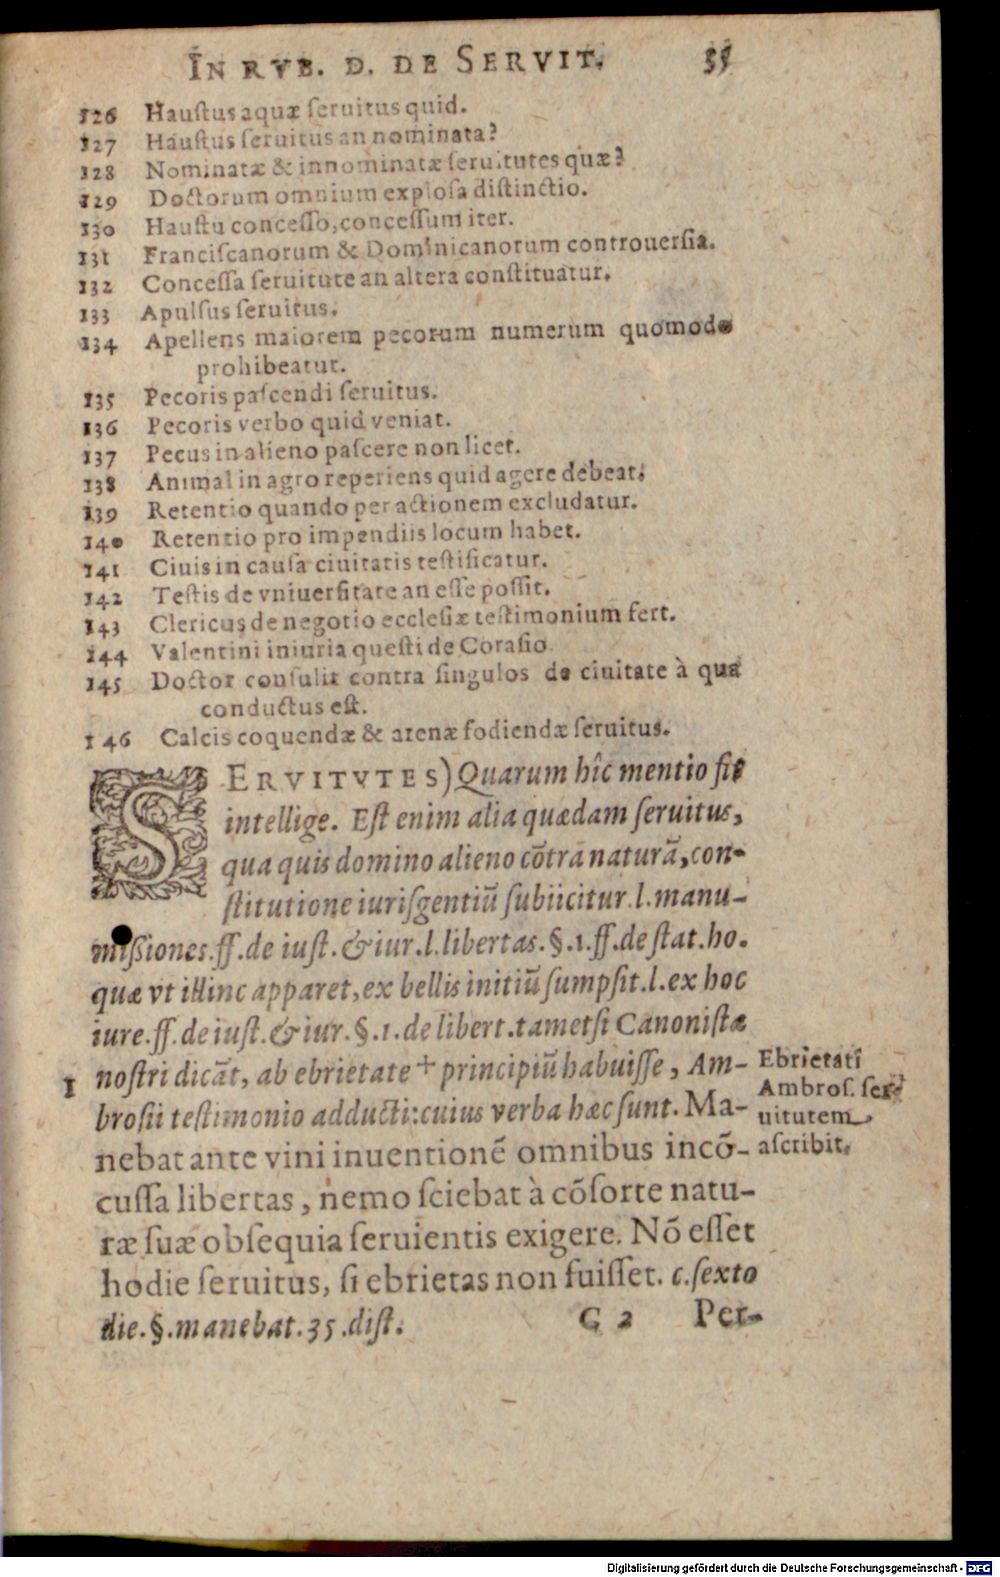 IN RVB. D. DE SERVIT. 55
126 Hauſtus aquæ ſeruitus quid.
127 Hauſtus ſeruitus an nominata?
128 Nominatæ & innominatæ ſeruitutes quæ?
129 Doctorum omnium exploſa diſtinctio.
130 Hauſtu conceſſo, conceſſum iter.
131 Franciſcanorum & Dominicanorum controuerſia.
132 Conceſſa ſeruitute an altera conſtituatur.
133 Apulſus ſeruitus.
134 Apellens maiorem pecorum numerum quomodo
prohibeatur.
135 Pecoris paſcendi ſeruitus.
136 Pecoris verbo quid veniat.
137 Pecus in alieno paſcere non licet.
138 Animal in agro reperiens quid agere debeat.
139 Retentio quando per actionem excludatur.
140 Retentio pro impendiis locum habet.
141 Ciuis in cauſa ciuitatis teſtificatur.
142 Teſtis de vniuerſitate an eſſe poſſit.
143 Clericus de negotio eccleſiæ teſtimonium fert.
144 Valentini iniuria queſti de Coraſio
145 Doctor conſulit contra ſingulos de ciuitate à qua
conductus eſt.
146 Calcis coquendæ & arenæ fodiendæ ſeruitus.
SERVITVTES) Quarum hîc mentio fit
intellige. Eſt enim alia quædam ſeruitus,
qua quis domino alieno cõtra naturã, con-
ſtitutione iuriſgentiũ ſubiicitur. l. manu-
miſsiones. ff. de iuſt. & iur. l. libertas. §. 1. ff. de ſtat. ho.
quæ vt illinc apparet, ex bellis initiũ ſumpſit. l. ex hoc
iure. ff. de iuſt. & iur. §. 1. de libert. tametſi Canoniſtæ
1 noſtri dicãt, ab ebrietate + principiũ habuiſſe, Am-
broſii teſtimonio adducti: cuius verba hæc ſunt. Ma-
nebat ante vini inuentionẽ omnibus incõ-
cuſſa libertas, nemo ſciebat à cõſorte natu-
ræ ſuæ obſequia ſeruientis exigere. Nõ eſſet
hodie ſeruitus, ſi ebrietas non fuiſſet. c. ſexto
die. §. manebat. 35. diſt.
Ebrietati
Ambroſ. ſer-
uitutem
aſcribit.
C 2 Per-
Digitalisierung gefördert durch die Deutsche Forschungsgemeinschaft - DFG